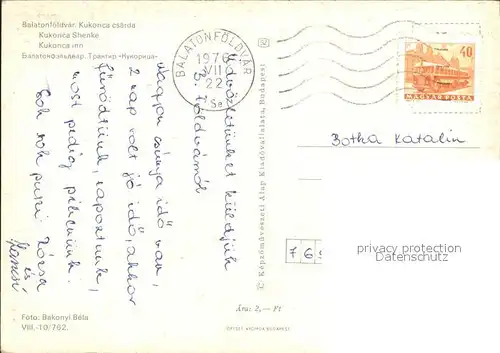 Balatonföldvár. Kukorica csárda
Kukorica Shenke
Kukorica inn
Балатонфэльдвар. Трактир «Кукорица»
BALATONFÖLDVÁR
1976
VII
22
40
MAGYAR POSTA
Üdvözletünket küldjük
B. földvárról
Nagyon csúnya idő van,
2 nap volt jó idő, akkor
fürödtünk, napoztunk,
most pedig pihenünk.
Sok sok puszi Józsa
és
Botha Katalin
© Képzőművészeti Alap Kiadóvállalata, Budapest
769
privacy protection
Datenschutz
Ára: 2,— Ft
Foto: Bakonyi Béla
VIII.-10/762.